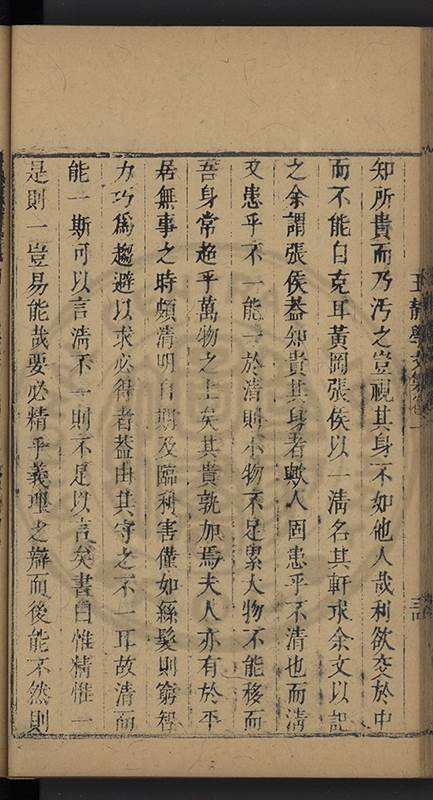 王靜學文集卷一
三
知所貴而乃汚之豈視其身不如他人哉利欲交於中
而不能自克耳黃岡張侯以一清名其軒求余文以記
之余謂張侯蓋知貴其身者歟人固患乎不清也而清
又患乎不一能一於清則小物不足累大物不能移而
吾身常超乎萬物之上矣其貴孰加焉夫人亦有於平
居無事之時頗清明自期及臨利害僅如絲髮則窮智
力巧爲趨避以求必得者蓋由其守之不一耳故清而
能一斯可以言清不一則不足以言矣書曰惟精惟一
是則一豈易能哉要必精乎義理之辯而後能不然則